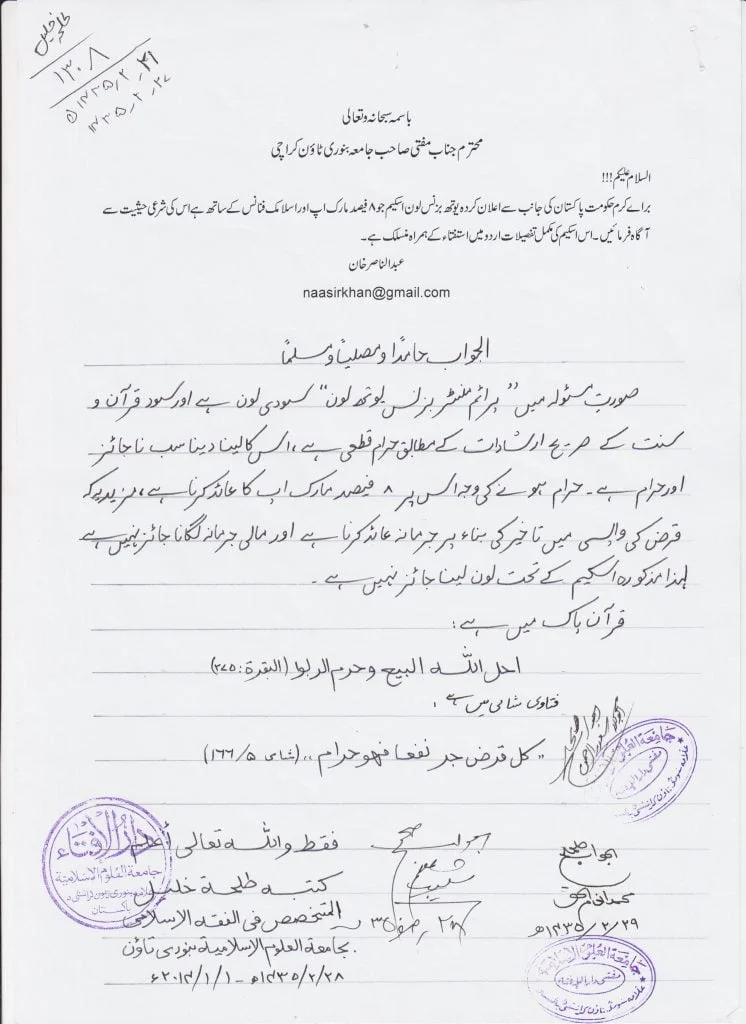 طلحہ خلیل
۱۳۰۸
۱۴۳۵-۲-۲۱
۱۴۳۵-۲-۲۷
باسمہ سبحانہ وتعالی
محترم جناب مفتی صاحب جامعہ بنوری ٹاؤن کراچی
السلام علیکم!!!
برائے کرم حکومت پاکستان کی جانب سے اعلان کردہ یوتھ بزنس لون اسکیم جو ۸ فیصد مارک اپ اور اسلامک فنانس کے ساتھ ہے اس کی شرعی حیثیت سے
آگاہ فرمائیں۔ اس اسکیم کی مکمل تفصیلات اردو میں استفتاء کے ہمراہ منسلک ہے۔
عبدالناصر خان
naasirkhan@gmail.com
الجواب حامدًا ومصلیًا ومسلمًا
صورتِ مسئولہ میں "پرائم منسٹر بزنس یوتھ لون" سودی لون ہے اور سود قرآن و
سنت کے صریح ارشادات کے مطابق حرام قطعی ہے، اس کا لینا دینا سب ناجائز
اور حرام ہے۔ حرام ہونے کی وجہ اس پر ۸ فیصد مارک اپ کا عائد کرنا ہے، مزید یہ کہ
قرض کی واپسی میں تاخیر کی بناء پر جرمانہ عائد کرنا ہے اور مالی جرمانہ لگانا جائز نہیں ہے
لہذا مذکورہ اسکیم کے تحت لون لینا جائز نہیں ہے۔
قرآن پاک میں ہے:
احل اللہ البیع وحرم الربوا (البقرة: ۲۷۵)
فتاوی شامی میں ہے:
"کل قرض جر نفعا فھو حرام" (شامی ۵/۱۶۶)
الجواب صحیح
جامعة العلوم الاسلامیة
دارالافتاء
جامعة العلوم الاسلامیة
علامہ بنوری ٹاؤن کراچی ۵
پاکستان
فقط واللہ تعالی أعلم
کتبہ طلحة خلیل
المتخصص فی الفقه الاسلامی
بجامعة العلوم الاسلامیة بنوری تاؤن
۱۴۳۵/۲/۲۸ھ - ۲۰۱۴/۱/۱ء
الجواب صحیح
شعیب
۲۸ صفر ۳۵
الجواب صحیح
محمد انعام الحق
۱۴۳۵/۲/۲۹ھ
جامعة العلوم الاسلامیة